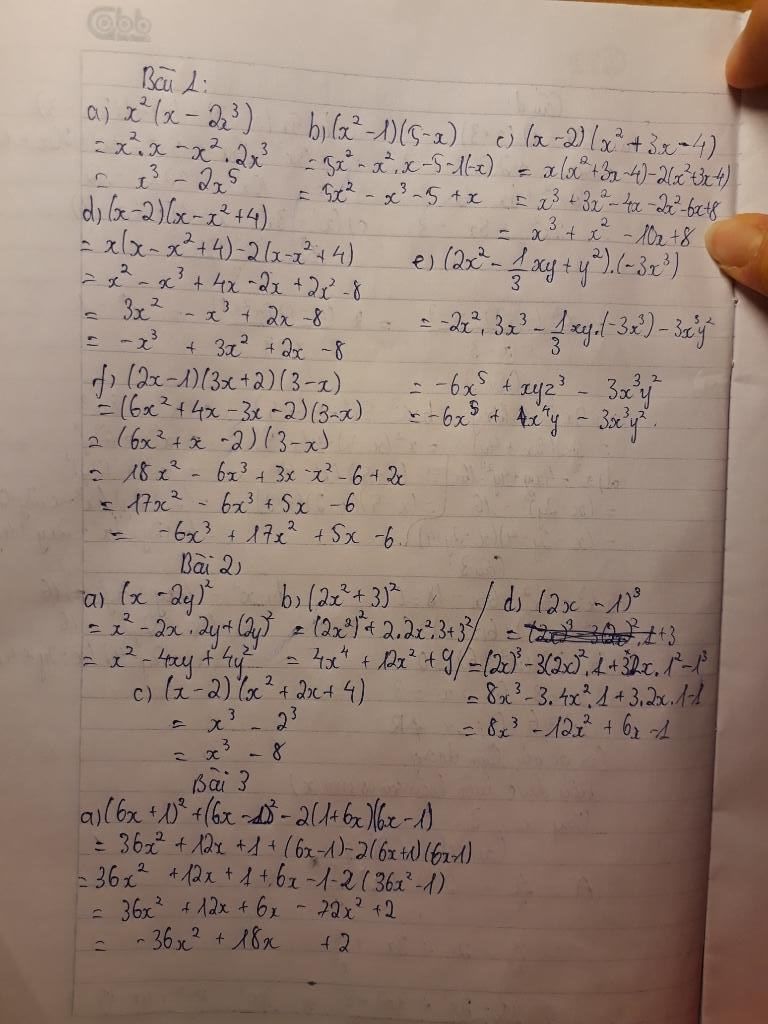 Bài 1:
a) x²(x - 2x³)
= x².x - x².2x³
= x³ - 2x⁵
b) (x² - 1)(5 - x)
= 5x² - x².x - 5 - 1(-x)
= 5x² - x³ - 5 + x
c) (x - 2)(x² + 3x - 4)
= x(x² + 3x - 4) - 2(x² + 3x - 4)
= x³ + 3x² - 4x - 2x² - 6x + 8
= x³ + x² - 10x + 8
d) (x - 2)(x - x² + 4)
= x(x - x² + 4) - 2(x - x² + 4)
= x² - x³ + 4x - 2x + 2x² - 8
= 3x² - x³ + 2x - 8
= -x³ + 3x² + 2x - 8
e) (2x² - 1/3 xy + y²).(-3x³)
= -2x².3x³ - 1/3 xy.(-3x³) - 3x³y²
= -6x⁵ + xyz³ - 3x³y²
= -6x⁵ + x⁴y - 3x³y².
f) (2x - 1)(3x + 2)(3 - x)
= (6x² + 4x - 3x - 2)(3 - x)
= (6x² + x - 2)(3 - x)
= 18x² - 6x³ + 3x - x² - 6 + 2x
= 17x² - 6x³ + 5x - 6
= -6x³ + 17x² + 5x - 6.
Bài 2)
a) (x - 2y)²
= x² - 2x.2y + (2y)²
= x² - 4xy + 4y²
b) (2x² + 3)²
= (2x²)² + 2.2x².3 + 3²
= 4x⁴ + 12x² + 9
c) (x - 2)(x² + 2x + 4)
= x³ - 2³
= x³ - 8
d) (2x - 1)³
= (2x)³ - 3(2x)².1 + 3
= (2x)³ - 3(2x)².1 + 3.2x.1² - 1³
= 8x³ - 3.4x².1 + 3.2x.1 - 1
= 8x³ - 12x² + 6x - 1
Bài 3
a) (6x + 1)² + (6x - 1)² - 2(1 + 6x)(6x - 1)
= 36x² + 12x + 1 + (6x - 1) - 2(6x + 1)(6x - 1)
= 36x² + 12x + 1 + 6x - 1 - 2(36x² - 1)
= 36x² + 12x + 6x - 72x² + 2
= -36x² + 18x + 2